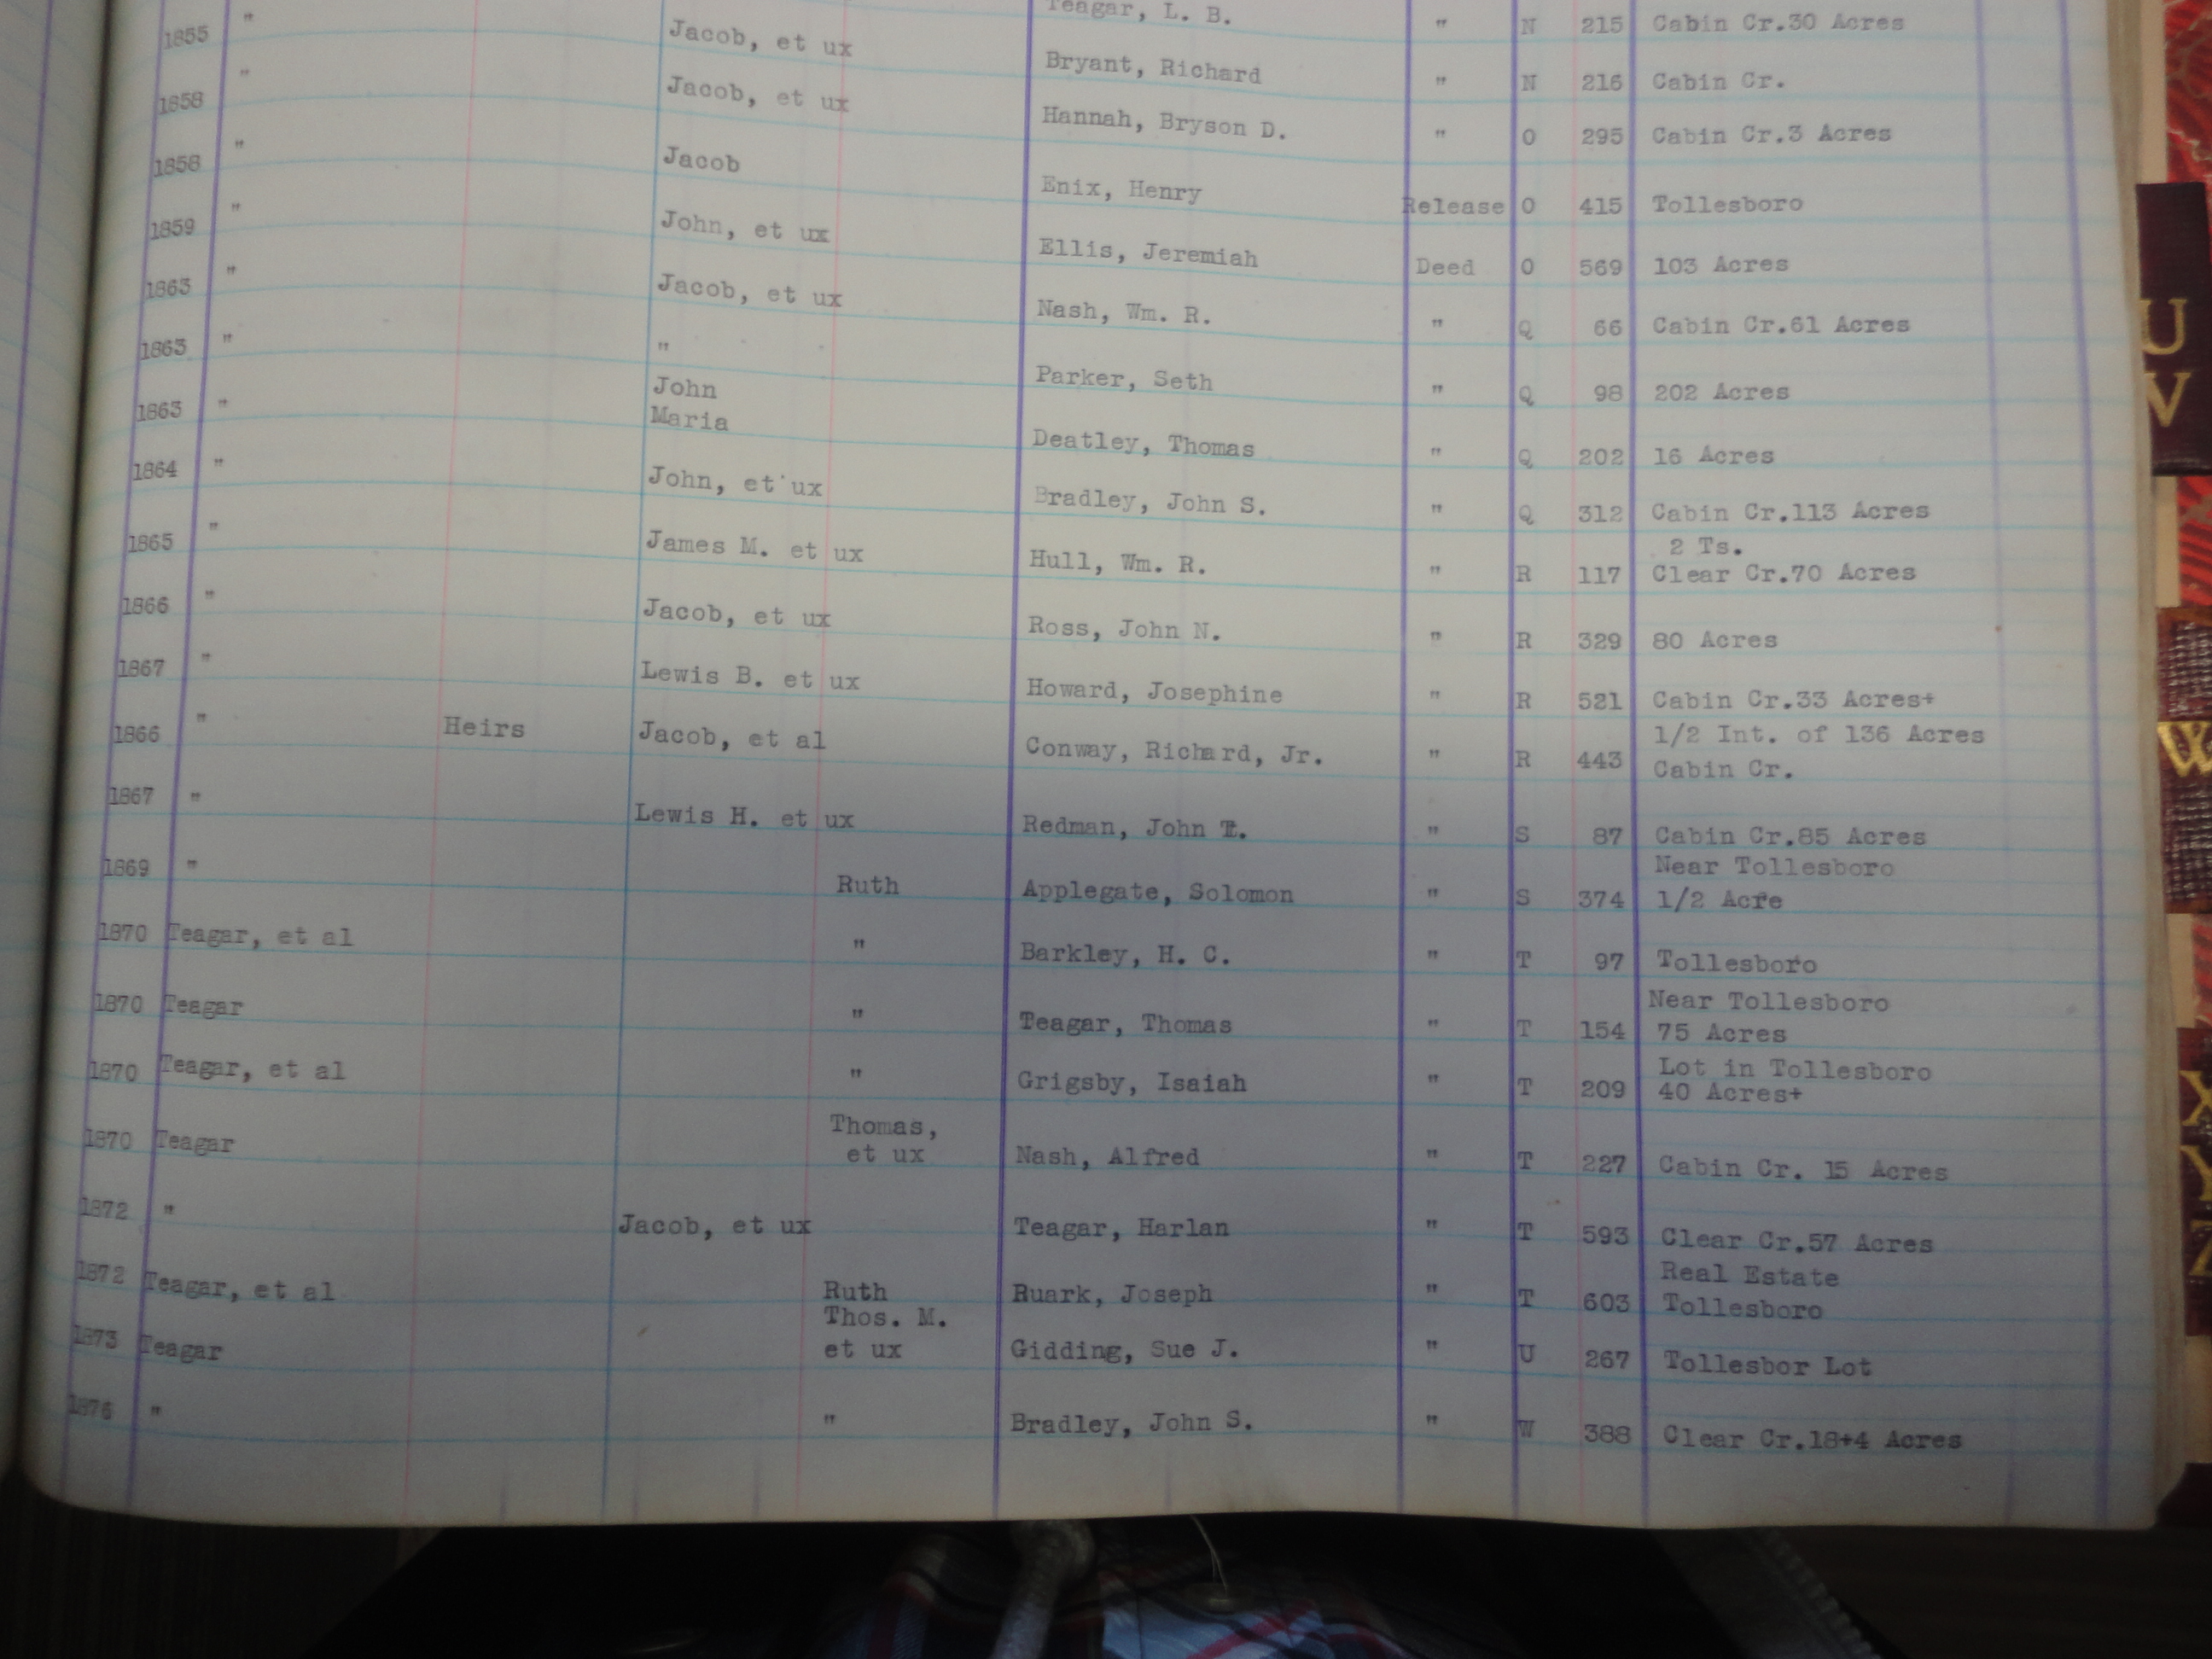 Teagar, L. B. " N 215 Cabin Cr.30 Acres
1855 " Jacob, et ux Bryant, Richard " N 216 Cabin Cr.
1858 " Jacob, et ux Hannah, Bryson D. " O 295 Cabin Cr.3 Acres
1858 " Jacob Enix, Henry Release O 415 Tollesboro
1859 " John, et ux Ellis, Jeremiah Deed O 569 103 Acres
1863 " Jacob, et ux Nash, Wm. R. " Q 66 Cabin Cr.61 Acres
1863 " " Parker, Seth " Q 98 202 Acres
John
1863 " Maria Deatley, Thomas " Q 202 16 Acres
1864 " John, et ux Bradley, John S. " Q 312 Cabin Cr.113 Acres
2 Ts.
1865 " James M. et ux Hull, Wm. R. " R 117 Clear Cr.70 Acres
1866 " Jacob, et ux Ross, John N. " R 329 80 Acres
1867 " Lewis B. et ux Howard, Josephine " R 521 Cabin Cr.33 Acres+
1/2 Int. of 136 Acres
1866 " Heirs Jacob, et al Conway, Richard, Jr. " R 443 Cabin Cr.
1867 " Lewis H. et ux Redman, John T. " S 87 Cabin Cr.85 Acres
Near Tollesboro
1869 " Ruth Applegate, Solomon " S 374 1/2 Acre
1870 Teagar, et al " Barkley, H. C. " T 97 Tollesboro
Near Tollesboro
1870 Teagar " Teagar, Thomas " T 154 75 Acres
Lot in Tollesboro
1870 Teagar, et al " Grigsby, Isaiah " T 209 40 Acres+
Thomas,
1870 Teagar et ux Nash, Alfred " T 227 Cabin Cr. 15 Acres
1872 " Jacob, et ux Teagar, Harlan " T 593 Clear Cr.57 Acres
Real Estate
1872 Teagar, et al Ruth Ruark, Joseph " T 603 Tollesboro
Thos. M.
1873 Teagar et ux Gidding, Sue J. " U 267 Tollesbor Lot
1876 " " Bradley, John S. " W 388 Clear Cr.18+4 Acres
U
V
W
X
Y
Z